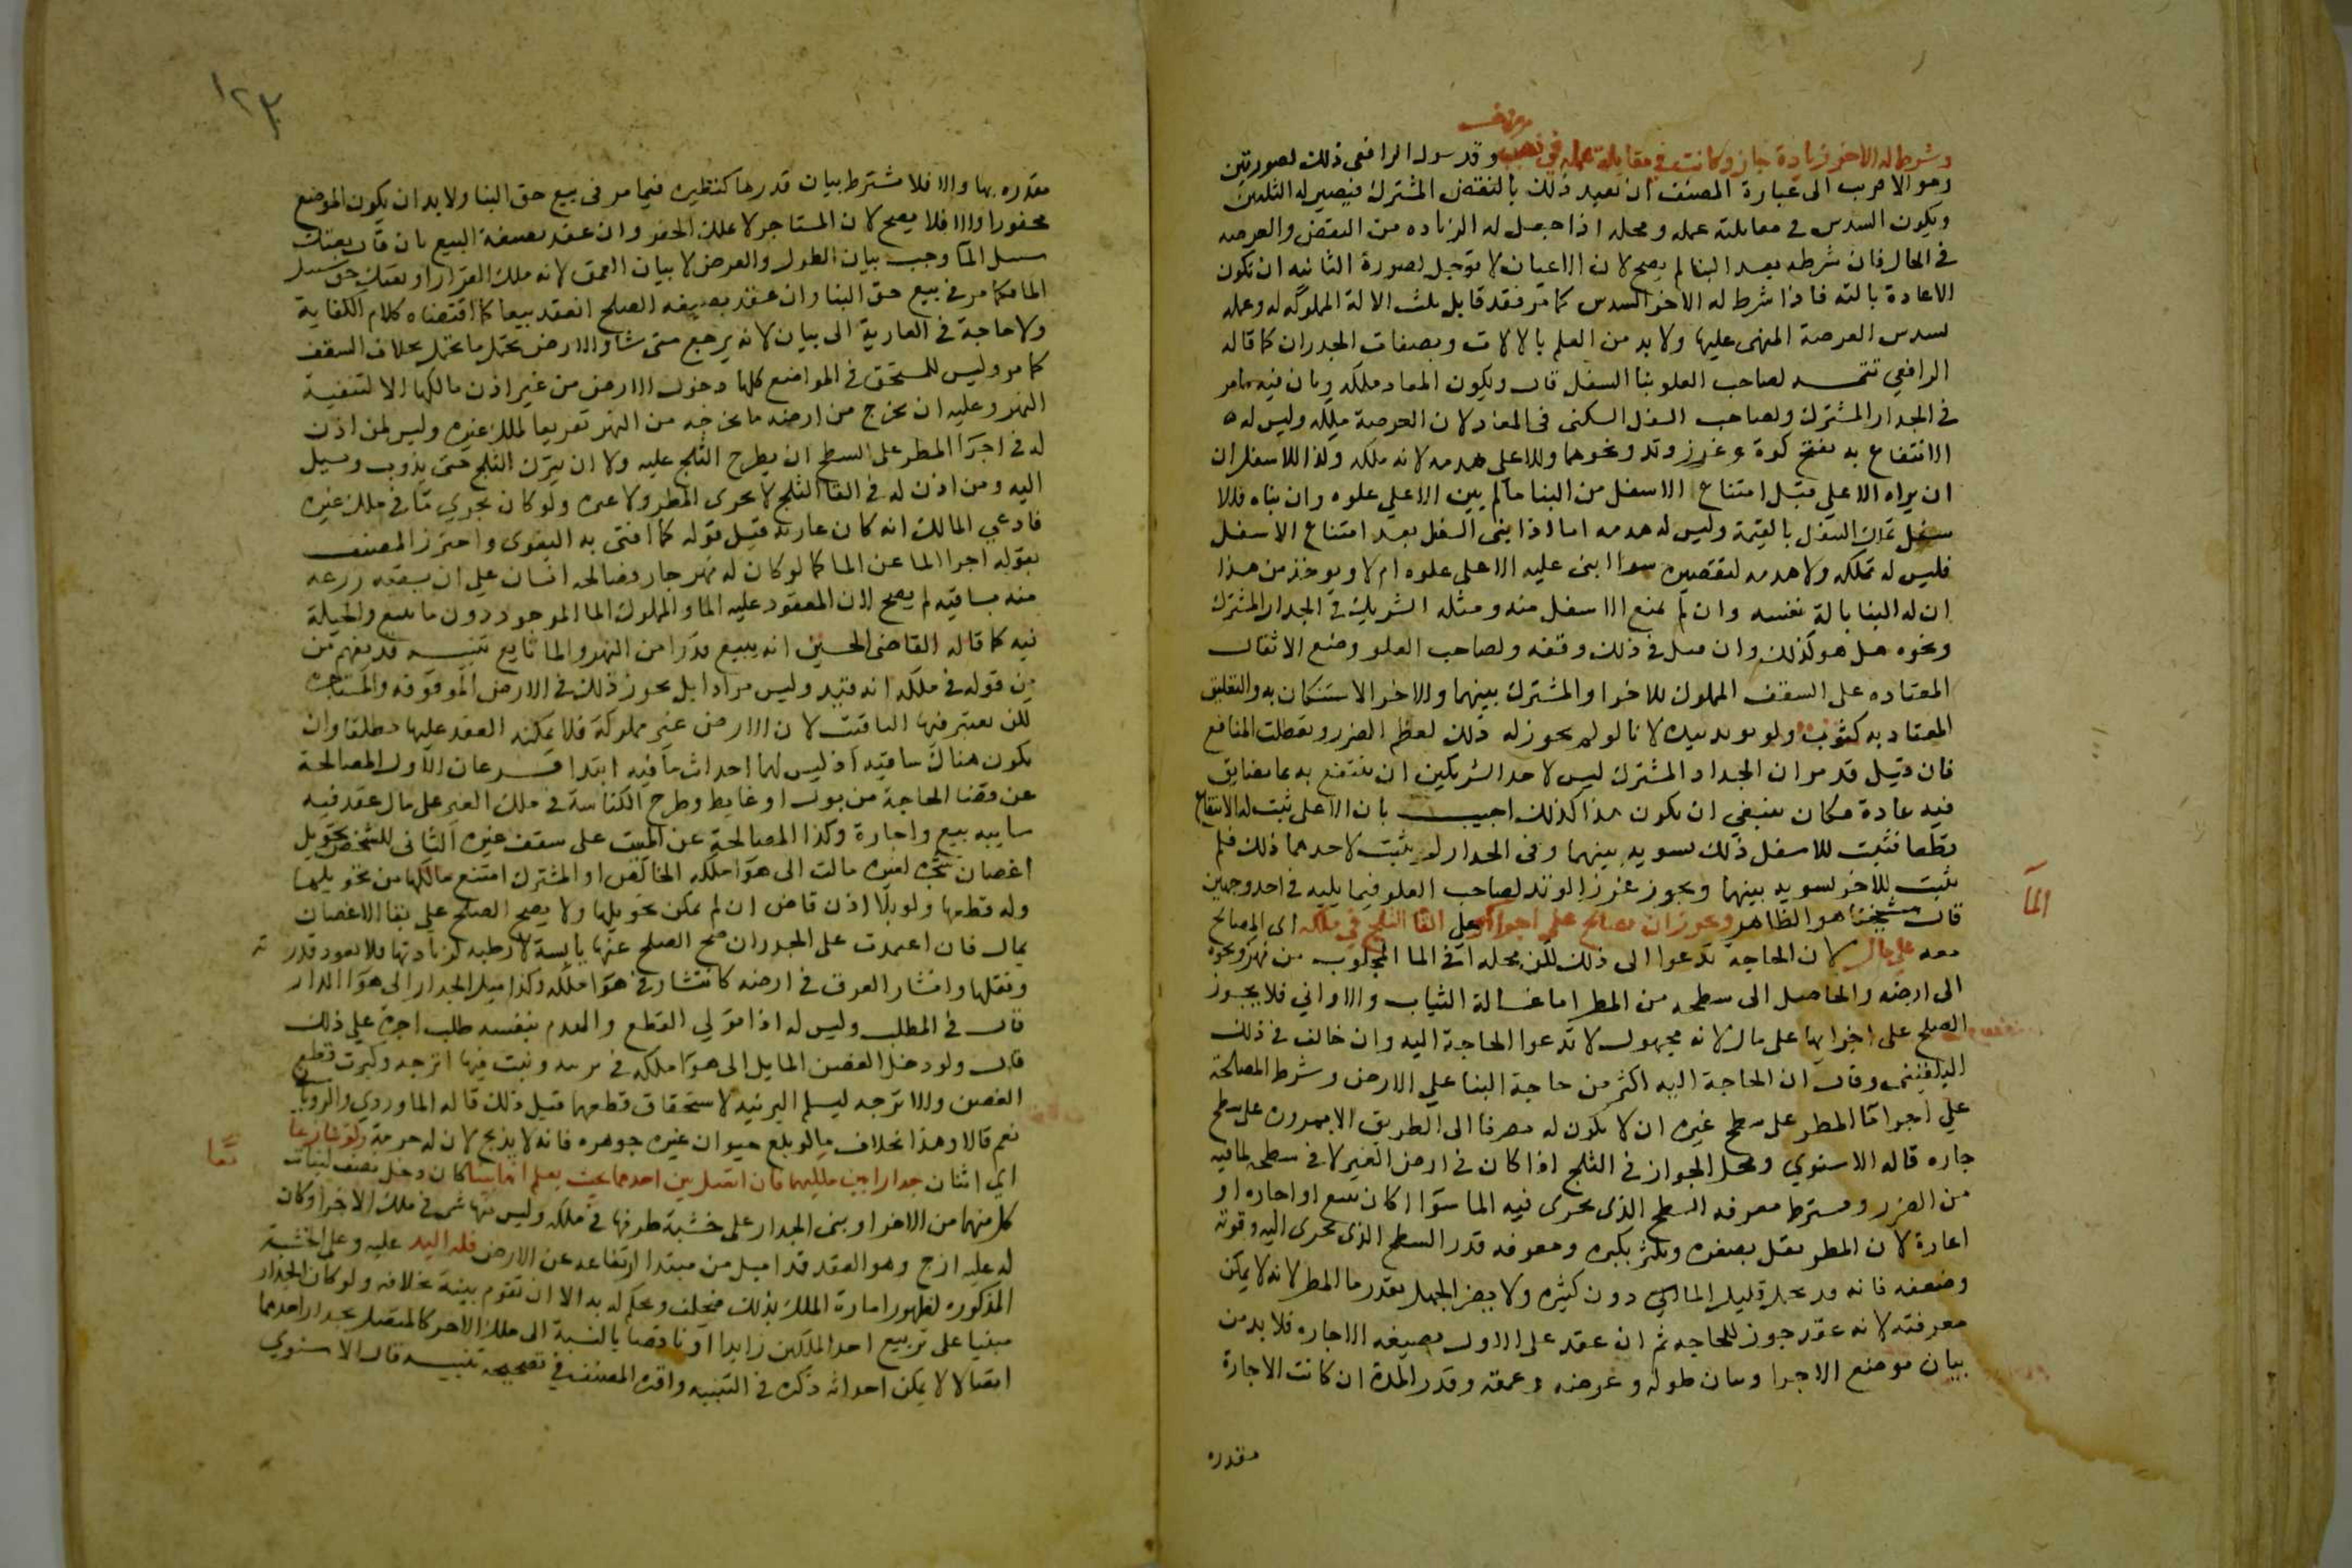 وشرط له الاخر زيادة جاز وكانت في مقابلة عمله في نصيب وقد سول الرافعى ذلك بصورتين
وهو الاقرب الى عبارة المصنف ان يعيد ذلك بالنقض المشترك فيصير له الثلثين
ويكون السدس فى مقابلة عمله ومحله اذا جعل له الزياده من النقض والعرصه
فى الحال فان شرطه بعد البنا لم يصح لان الاعيان لا توجل لصورة الثانيه ان تكون
الاعادة بالته فاذا شرط له الاخر السدس كما مر فقد قابل ثلث الالة المملوكه له وعمله
لسدس العرصة المبنى عليها ولا بد من العلم بالالات وبصفات الجدران كما قاله
الرافعي تتمـــه لصاحب العلو بنا السفل قال ويكون المعاد ملكه وبان فيه مامر
فى الجدار المشترك ولصاحب السفل السكنى فى المعاد لان العرصة ملكه وليس له
الانتفاع به بفتح كوة وغرز وتد ونحوهما وللاعلى هدمه لانه ملكه وكذا للاسفل ان
ان يراه الاعلى قبل امتناع الاسفل من البنا مالم يبن الاعلى علوه وان بناه فللا
سفل تملك السفل بالقيمة وليس له هدمه اما اذا بنى السفل بعد امتناع الاسفل
فليس له تملكه ولا هدمه لتقصيره سوا ابنى عليه الاعلى علوه ام لا ويوخذ من هذا
ان له البنا بالة نفسه وان لم يمنع الاسفل منه ومثله الشريك فى الجدار المشترك
ونحوه هل هو كذلك وان قيل فى ذلك وقفه ولصاحب العلو وضع الاثقال
المعتاده على السقف المملوك للاخر او المشترك بينهما وللاخر الاستكنان به والتعليق
المعتاد به كثوب ولو بوتد يتيده لانا لو لم نجوز له ذلك لعظم الضرر وتعطلت المنافع
فان قيل قد مر ان الجدار المشترك ليس لاحد الشريكين ان ينتفع به بما يضايق
فيه عادة فكان ينبغي ان يكون هذا كذلك اجيب بان الاعلى ثبت له الانتفاع
قطعا فثبت للاسفل ذلك تسوية بينهما وفى الجدار لم يثبت لاحدهما ذلك فلم
يثبت للاخر تسوية بينهما ويجوز غرز الوتد لصاحب العلو فيما يليه فى احد وجهين
قال شيخنا هو الظاهر ويجوز ان يصالح على اجرا الما وعلى القا الثلج فى ملكه اى المصالح
الما
معه على مال لان الحاجة تدعوا الى ذلك لكن محله فى الما المجلوب من نهر ونحوه
الى ارضه والحاصل الى سطحه من المطر اما غسالة الثياب والاوانى فلا يجوز
الصلح على اجرايها على مال لانه مجهول لا تدعوا الحاجة اليه وان خالف فى ذلك
البلقينى وقال ان الحاجة اليه اكثر من حاجة البنا على الارض وشرط المصالحة
على اجرا ما المطر على سطح غيره ان لا يكون له مصرفا الى الطريق الا بمروره على سطح
جاره قاله الاسنوي ومحل الجواز فى الثلج اذا كان فى ارض الغير لا فى سطحه لما فيه
من الضرر ويشترط معرفه السطح الذى يجرى فيه الما سوا اكان ببيع او اجاره او
اعارة لان المطر يقل بصغره ويكثر بكبره ومعرفه قدر السطح الذى يجرى اليه وقوته
وضعفه فانه قد يحمل قليل الما دون كثيره ولا يضر الجهل بقدر ما المطر لانه لا يمكن
معرفته لانه عقد جوز للحاجه ثم ان عقد على الاول بصيغه الاجاره فلا بد من
بيان موضع الاجرا وبيان طوله وعرضه وعمقه وقدر المدة ان كانت الاجارة
مقدره
١٢٣
مقدره بها والا فلا يشترط بيان قدرها كنظيره فيما مر فى بيع حق البنا ولا بد ان يكون الموضع
محفورا والا فلا يصح لان المستاجر لا يملك الحفر وان عقد بصيغة البيع بان قال بعتك
مسيل الما وجب بيان الطول والعرض لا بيان العمق لانه ملك القرار او بعتك حق مسيل
الما فكما مر فى بيع حق البنا وان عقد بصيغه الصلح انعقد بيعا كما اقتضاه كلام الكفاية
ولا حاجة فى العارية الى بيان لانه يرجع متى شا والارض تحتمل ما تحتمل بخلاف السقف
كما مر وليس للمستحق فى المواضع كلها دخول الارض من غير اذن مالكها الا لتنقية
النهر وعليه ان يخرج من ارضه ما يخرجه من النهر تفريغا لملك غيره وليس لمن اذن
له فى اجرا المطر على السطح ان يطرح الثلج عليه ولا ان يترك الثلج حتى يذوب ويسيل
اليه ومن اذن له فى القا الثلج لا يجرى المطر ولا غيره ولو كان يجري ما فى ملك غيره
فادعى المالك انه كان عارية قبل قوله كما افتى به البغوى واحترز المصنف
بقوله اجرا الما عن الما كما لو كان له نهر جار فصالحه انسان على ان يسقى زرعه
منه بساقيه لم يصح لان المعقود عليه الما والمملوك الما الموجود دون ما ينبع والحيلة
فيه كما قاله القاضى الحسين انه يبيع قدرا من النهر والما تابع تنبيه قد يفهم من
من قوله فى ملكه انه قيد وليس مرادا بل يجوز ذلك فى الارض الموقوفه والمستاجره
لكن يعتبر فيها التاقيت لان الارض غير مملوكة فلا يمكنه العقد عليها مطلقا وان
يكون هناك ساقيه اذ ليس لهما احداث ساقيه ابتدا فرعان الاول المصالحة
عن قضا الحاجة من بول او غايط وطرح الكناسة فى ملك الغير على مال عقد فيه
شايبه بيع واجارة وكذا المصالحة عن المبيت على سقف غيره الثانى للشخص تحويل
اغصان شجره لغيره مالت الى هوا ملكه الخالص او المشترك امتنع مالكها من تحويلها
وله قطعها ولو بلا اذن قاض ان لم يمكن تحويلها ولا يصح الصلح على بقا الاغصان
بمال فان اعتمدت على الجدران صح الصلح عنها يابسة لا رطبه لزيادتها فلا يعرف قدر
وثقلها وانتشار العروق فى ارضه كانتشار فى هوا ملكه وكذا ميل الجدار الى هوا الدار
قال فى المطلب وليس له اذا تولى القطع والهدم بنفسه طلب اجرة على ذلك
قال ولو دخل الغصن المايل الى هوا ملكه فى برنيه ونبت فيها اترجه وكبرت قطع
الغصن والاترجه ليسلم البرنيه لاستحقاق قطعهما قبل ذلك قاله الماوردى والرويا
نى
نعم قالا وهذا بخلاف ما لو بلع حيوان غيره جوهره فانه لا يذبح لان له حرمة ولو تنازعا
اى اثنان جدارا بين ملكيهما فان اتصل ببنا احدهما بحيث يعلم انهما بنيا كان دخل نصف لبنات
كل منهما من الاخر او بنى الجدار على خشبة طرفها فى ملكه وليس منها شى فى ملك الاخر او كان
له عليه ازج وهو العقد قد اميل من مبتدا ارتفاعه عن الارض فله اليد عليه وعلى الخشبة
المذكوره لظهور امارة الملك بذلك فيحلف ويحكم له به الا ان تقوم بينة بخلافه ولو كان الجدار
مبنيا على تربيع احد الملكين زايدا او ناقصا بالنسبة الى ملك الاخر كالمتصل بجدار احدهما
اتصالا لا يمكن احداثه ذكره فى التنبيه واقره المصنف فى تصحيحه تنبيه قال الاسنوي